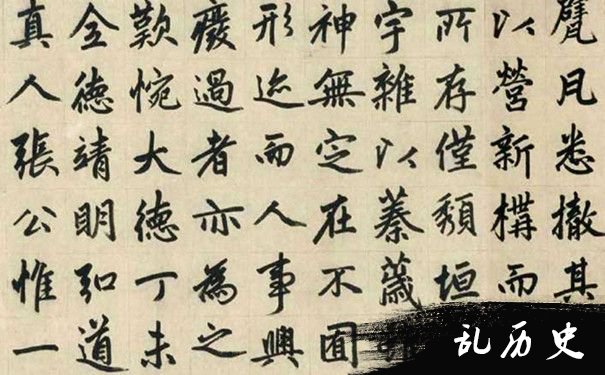 甓凡悉撤其
以營新構而
所存僅頹垣
宇雜以蓁
神無定在不囿
形迹而人事興
廢過者亦為之
歎惋大德丁未
全德靖明弘道
真人張公惟一
乱历史